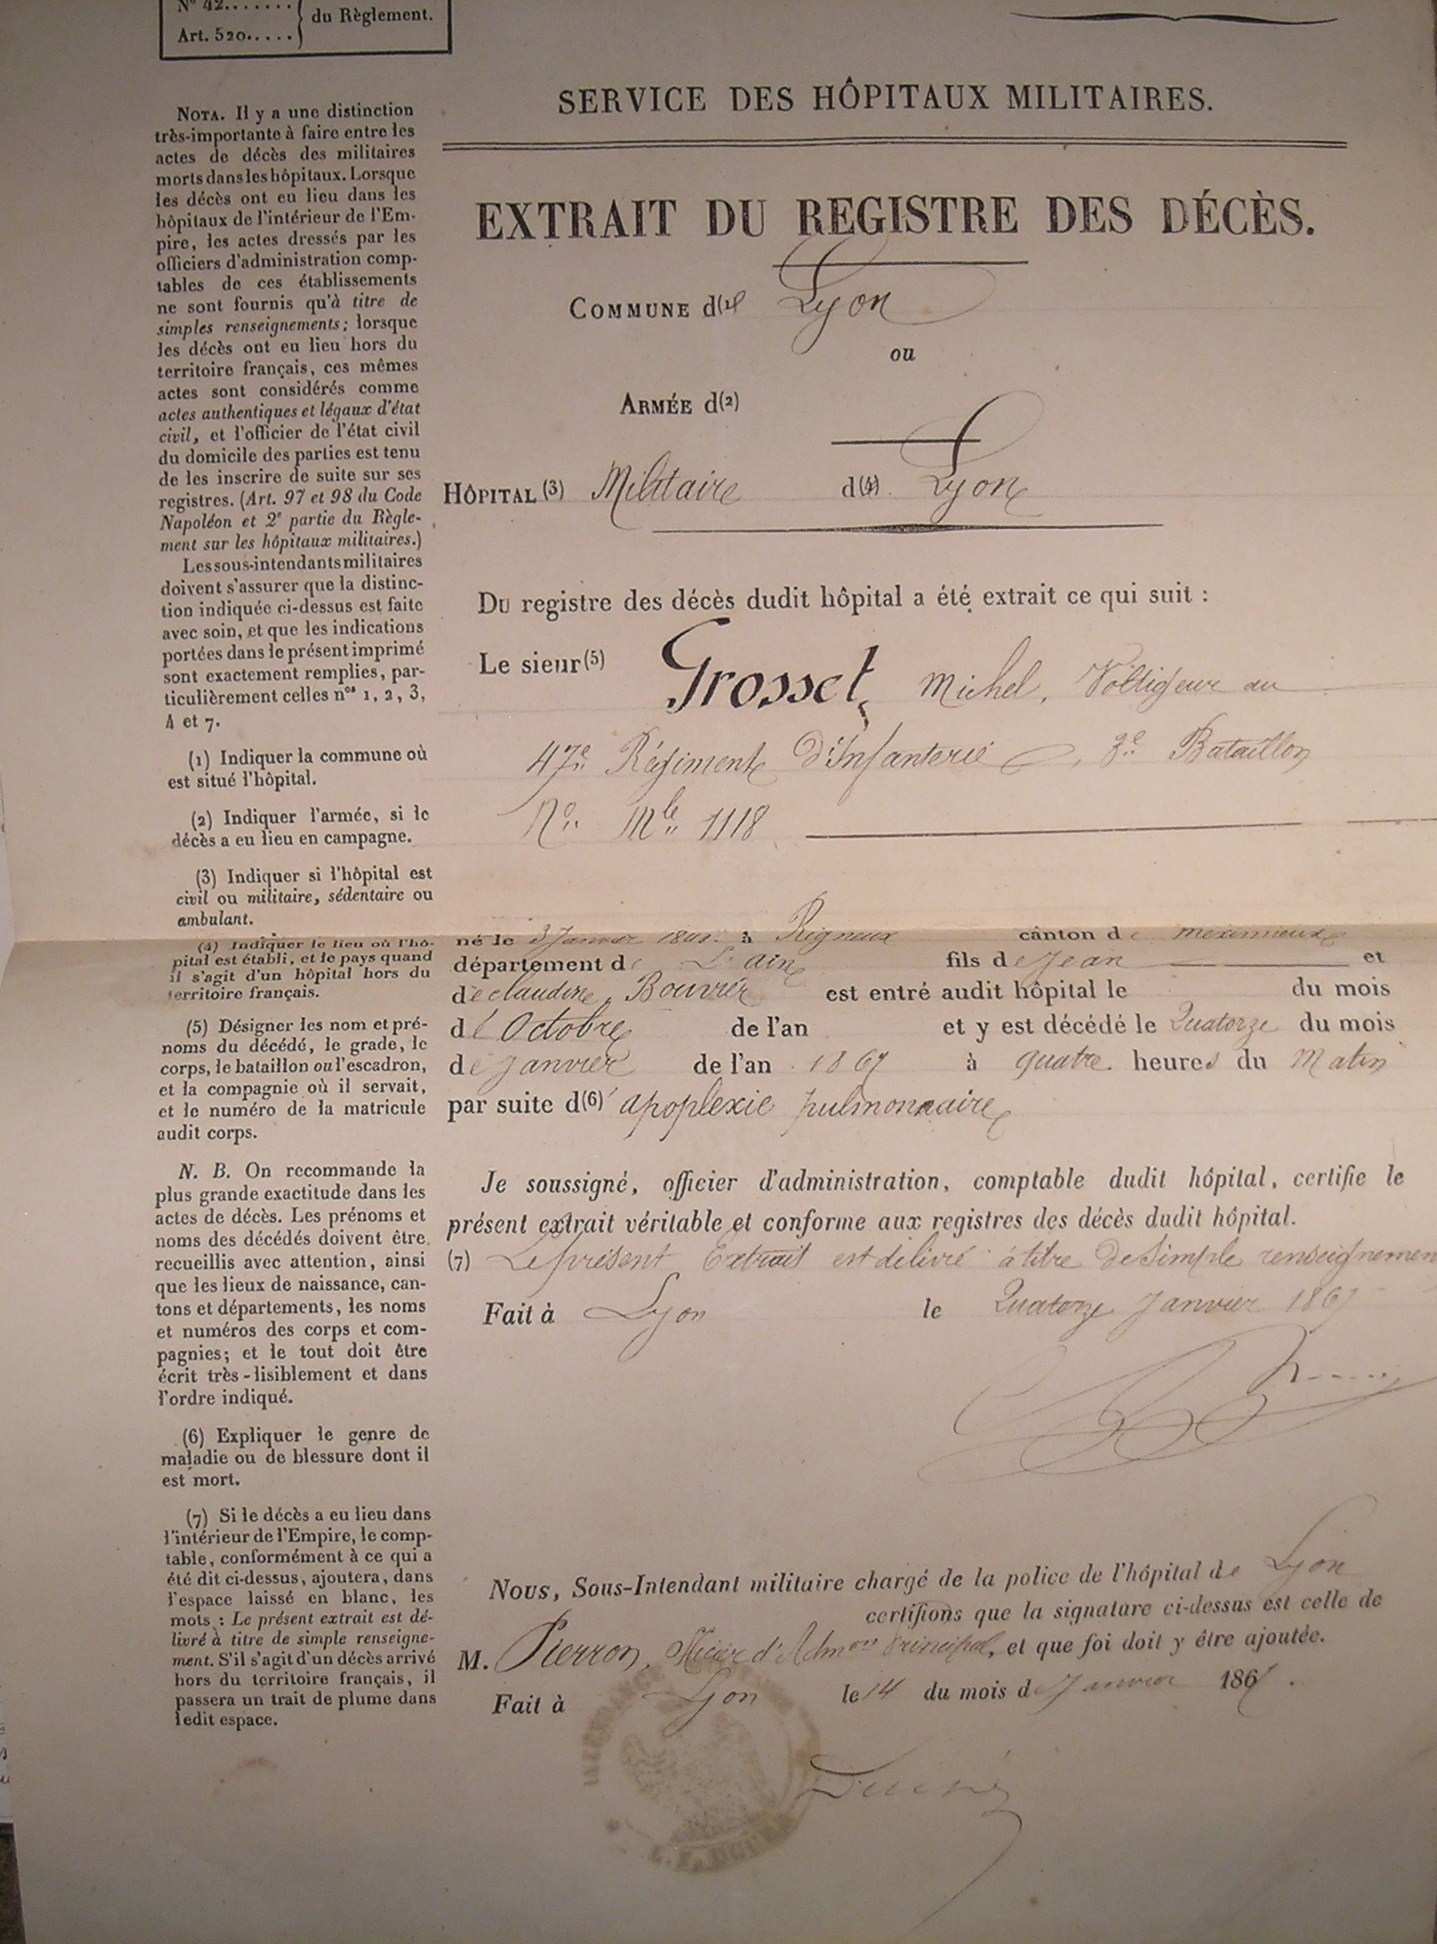 N° 42.......
Art. 520.....
du Règlement.
SERVICE DES HÔPITAUX MILITAIRES.
EXTRAIT DU REGISTRE DES DÉCÈS.
COMMUNE d(1)e Lyon
ou
ARMÉE d(2)
HÔPITAL (3) Militaire d(4) Lyon
Du registre des décès dudit hôpital a été extrait ce qui suit :
Le sieur (5) Grosset, Michel, Voltigeur au
47e Régiment d'Infanterie, 3e Bataillon
No Mle 1118
né le 3 Janvier à Rigneux canton de meximieux
département de L'ain fils de Jean et
de claudine Bouvier est entré audit hôpital le du mois
d'Octobre de l'an et y est décédé le Quatorze du mois
de Janvier de l'an 1867 à quatre heures du Matin
par suite d(6)' apoplexie pulmonnaire
Je soussigné, officier d'administration, comptable dudit hôpital, certifie le
présent extrait véritable et conforme aux registres des décès dudit hôpital.
(7) Le présent Extrait est délivré à titre de simple renseignement
Fait à Lyon le Quatorze Janvier 1867
Nous, Sous-Intendant militaire chargé de la police de l'hôpital de Lyon
certifions que la signature ci-dessus est celle de
M. Pierron, officier d'Admon Principal, et que foi doit y être ajoutée.
Fait à Lyon le 14 du mois de Janvier 1867.
NOTA. Il y a une distinction
très-importante à faire entre les
actes de décès des militaires
morts dans les hôpitaux. Lorsque
les décès ont eu lieu dans les
hôpitaux de l'intérieur de l'Em-
pire, les actes dressés par les
officiers d'administration comp-
tables de ces établissements
ne sont fournis qu'à titre de
simples renseignements; lorsque
les décès ont eu lieu hors du
territoire français, ces mêmes
actes sont considérés comme
actes authentiques et légaux d'état
civil, et l'officier de l'état civil
du domicile des parties est tenu
de les inscrire de suite sur ses
registres. (Art. 97 et 98 du Code
Napoléon et 2e partie du Règle-
ment sur les hôpitaux militaires.)
Les sous-intendants militaires
doivent s'assurer que la distinc-
tion indiquée ci-dessus est faite
avec soin, et que les indications
portées dans le présent imprimé
sont exactement remplies, par-
ticulièrement celles nos 1, 2, 3,
4 et 7.
(1) Indiquer la commune où
est situé l'hôpital.
(2) Indiquer l'armée, si le
décès a eu lieu en campagne.
(3) Indiquer si l'hôpital est
civil ou militaire, sédentaire ou
ambulant.
(4) Indiquer le lieu où l'hô-
pital est établi, et le pays quand
il s'agit d'un hôpital hors du
territoire français.
(5) Désigner les nom et pré-
noms du décédé, le grade, le
corps, le bataillon ou l'escadron,
et la compagnie où il servait,
et le numéro de la matricule
audit corps.
N. B. On recommande la
plus grande exactitude dans les
actes de décès. Les prénoms et
noms des décédés doivent être
recueillis avec attention, ainsi
que les lieux de naissance, can-
tons et départements, les noms
et numéros des corps et com-
pagnies; et le tout doit être
écrit très-lisiblement et dans
l'ordre indiqué.
(6) Expliquer le genre de
maladie ou de blessure dont il
est mort.
(7) Si le décès a eu lieu dans
l'intérieur de l'Empire, le comp-
table, conformément à ce qui a
été dit ci-dessus, ajoutera, dans
l'espace laissé en blanc, les
mots : Le présent extrait est dé-
livré à titre de simple renseigne-
ment. S'il s'agit d'un décès arrivé
hors du territoire français, il
passera un trait de plume dans
ledit espace.